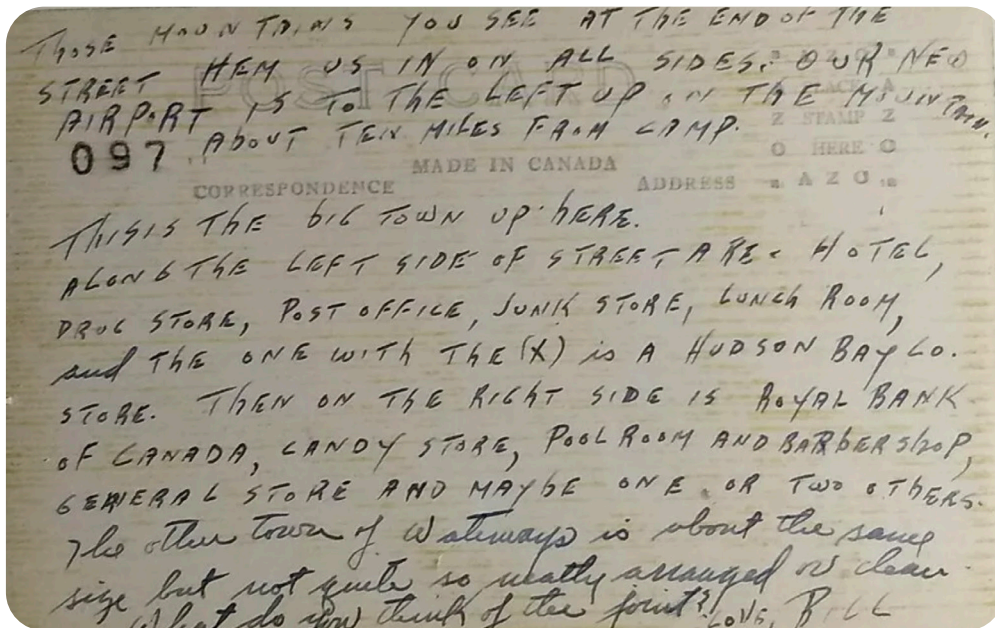 THOSE MOUNTAINS YOU SEE AT THE END OF THE
STREET HEM US IN ON ALL SIDES. OUR NEW
AIRPORT IS TO THE LEFT UP IN THE MOUNTAIN.
ABOUT TEN MILES FROM CAMP.
POST CARD
AZO
PLACE
Z STAMP Z
O HERE O
AZO
097
MADE IN CANADA
CORRESPONDENCE
ADDRESS
THIS IS THE BIG TOWN UP HERE.
ALONG THE LEFT SIDE OF STREET ARE - HOTEL,
DRUG STORE, POST OFFICE, JUNK STORE, LUNCH ROOM,
and THE ONE WITH THE (X) is A HUDSON BAY CO.
STORE. THEN ON THE RIGHT SIDE IS ROYAL BANK
OF CANADA, CANDY STORE, POOL ROOM AND BARBERSHOP,
GENERAL STORE AND MAYBE ONE OR TWO OTHERS.
The other town of Waterways is about the same
size but not quite so neatly arranged or clean.
What do you think of the joint? LOVE, BILL